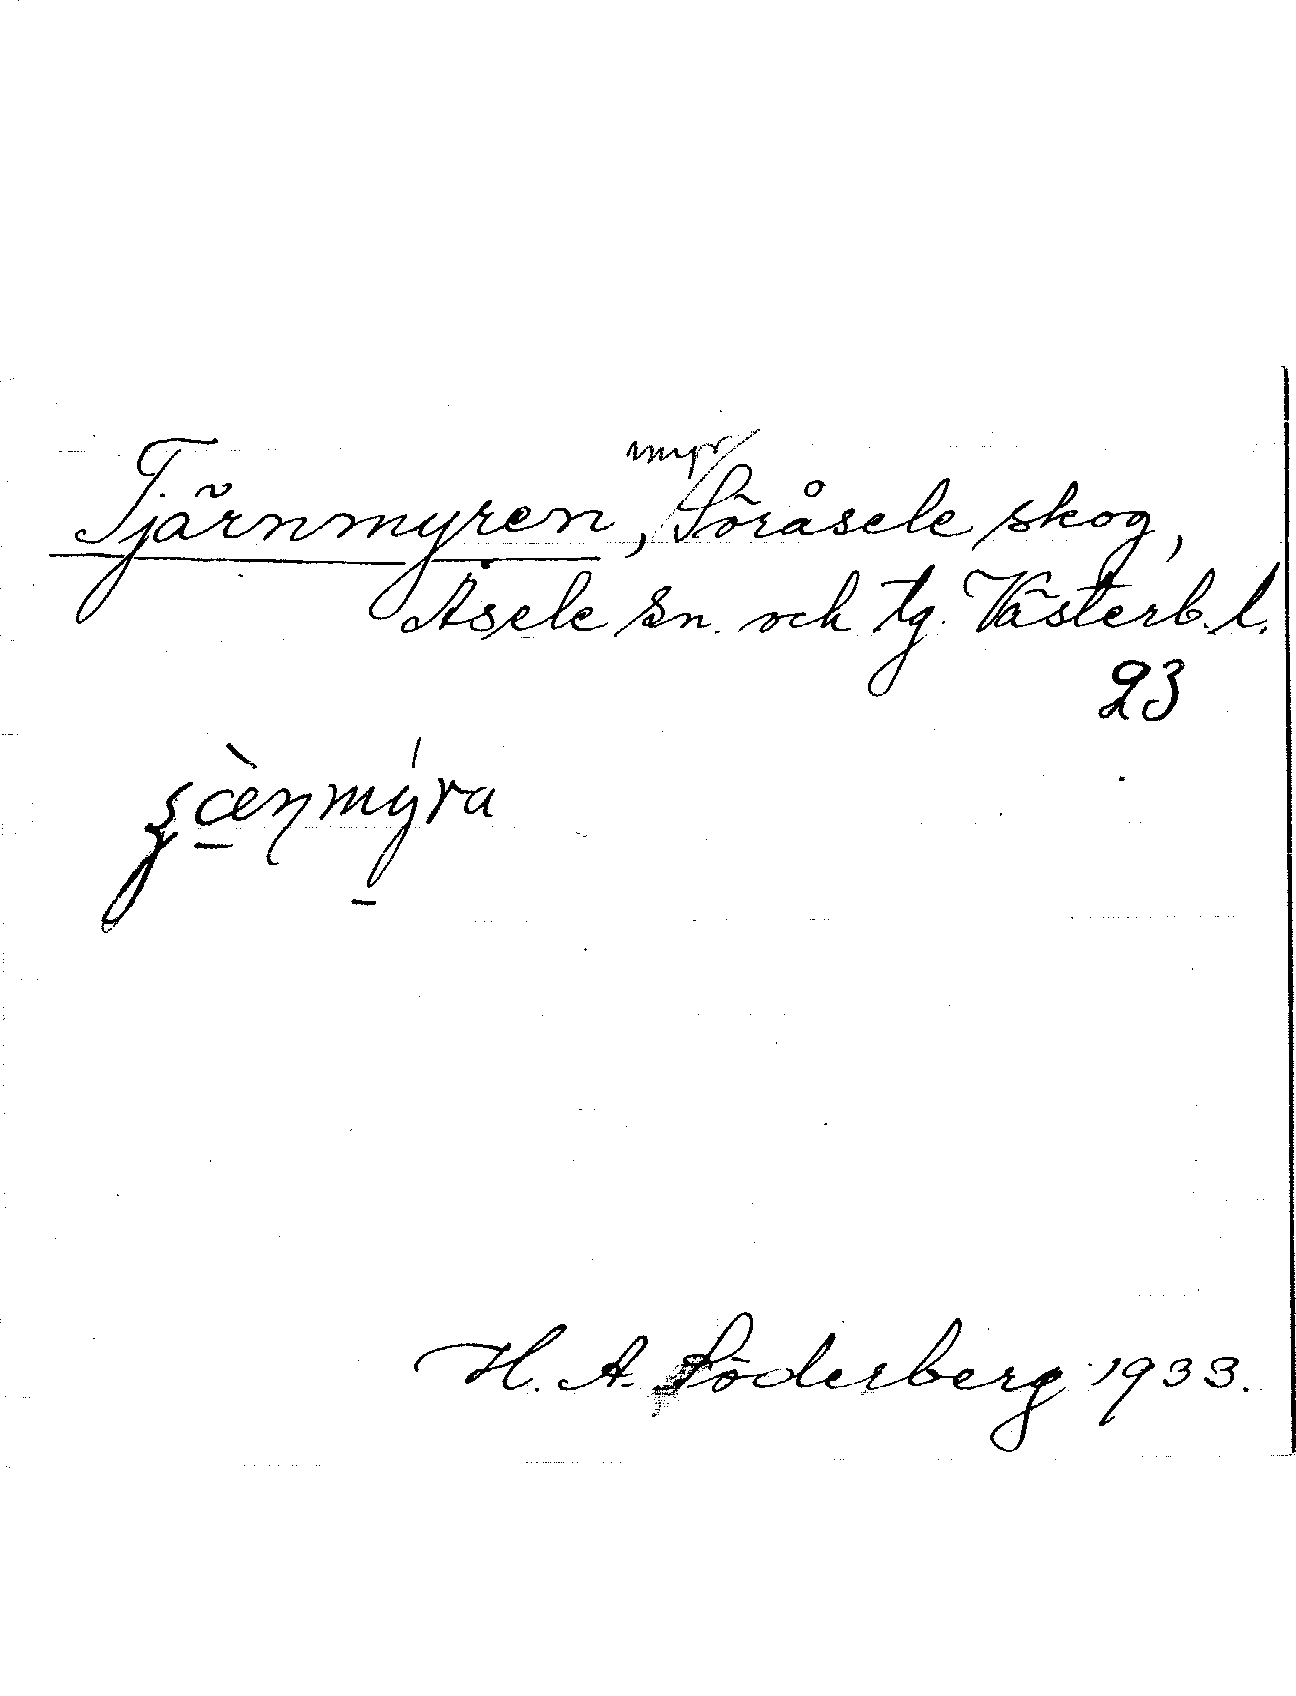 Tjärnmyren, myr Söråsele skog,
Åsele sn. och tg. Västerb. l.
23
H. A. Söderberg 1933.